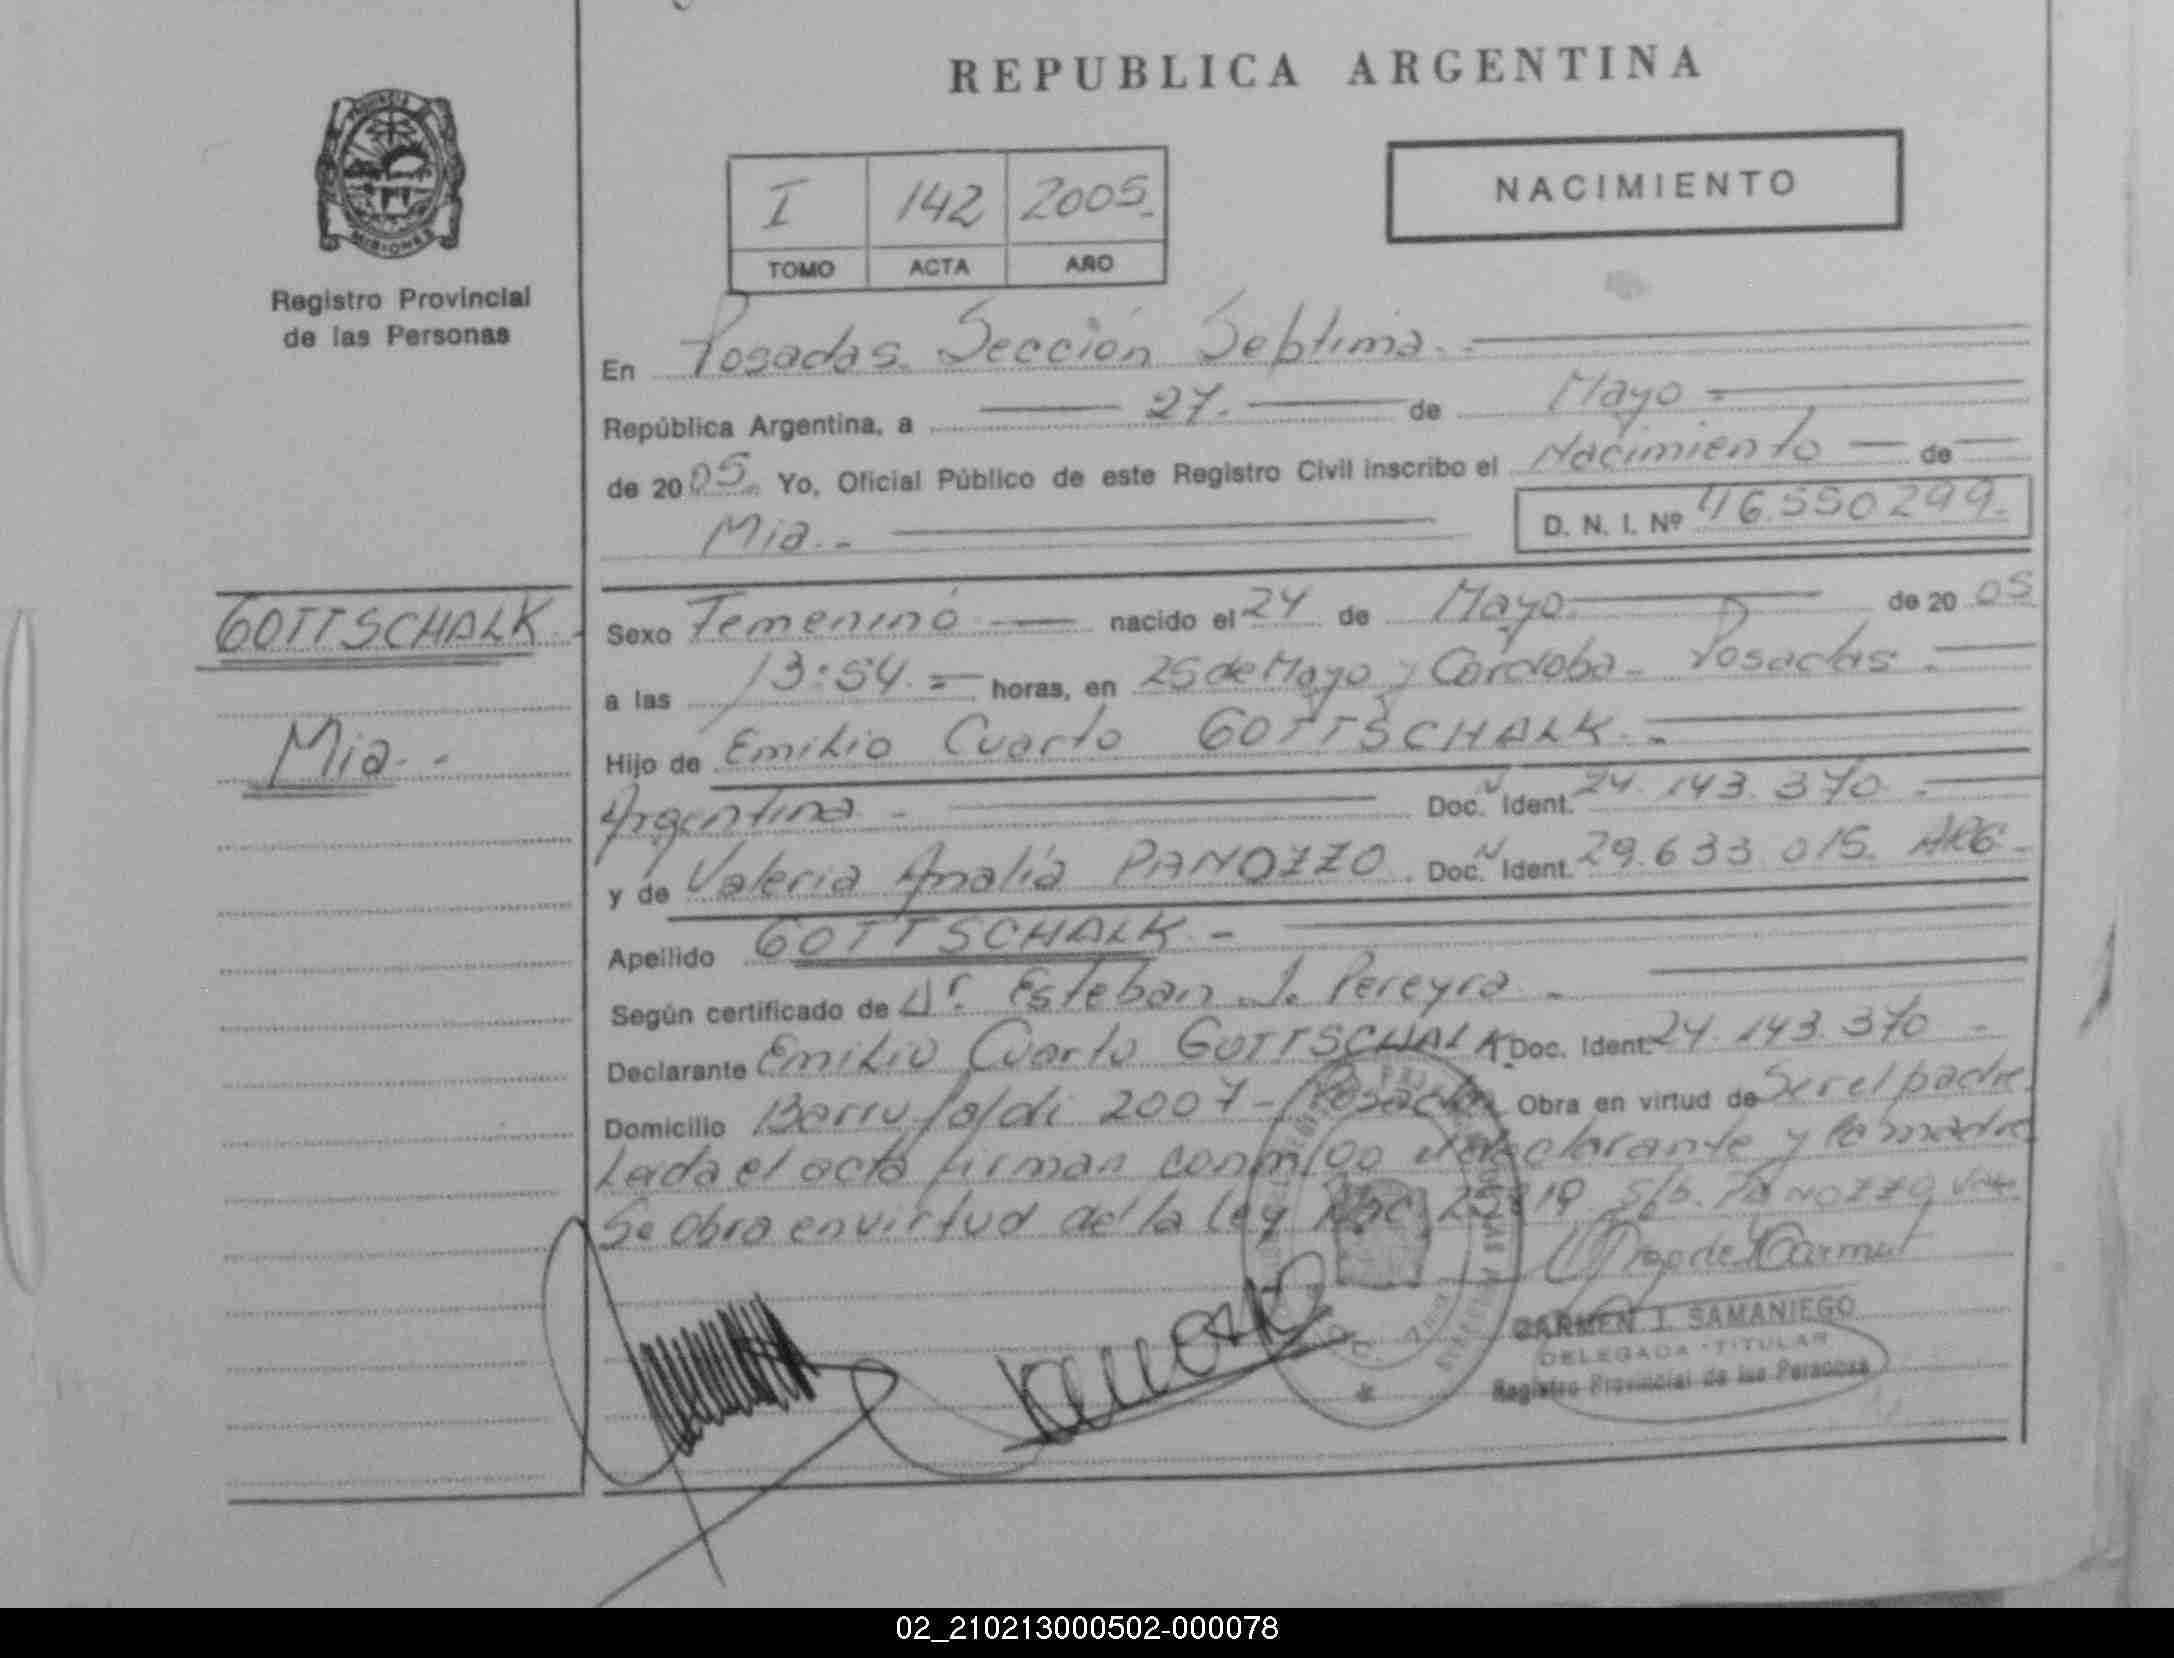 REPUBLICA ARGENTINA
PROVINCIA
MISIONES
Registro Provincial
de las Personas
I 142 2005.
TOMO ACTA AÑO
NACIMIENTO
En Posadas Sección Septima.-
República Argentina, a 27. de Mayo
de 2005. Yo, Oficial Público de este Registro Civil inscribo el Nacimiento de
Mia.-
D. N. I. Nº 46.550299.
GOTTSCHALK.
Mia.-
Sexo Femenino nacido el 24 de Mayo de 2005
a las 13:54.= horas, en 25 de Mayo y Cordoba- Posadas.
Hijo de Emilio Cuarto GOTTSCHALK.-
Argentina - Doc. Ident. 24.143.370.
y de Valeria Amalia PANOZZO Doc. Ident. 29.633.015. ARG-
Apellido GOTTSCHALK.-
Según certificado de Dr. Esteban J. Pereyra.
Declarante Emilio Cuarto GOTTSCHALK Doc. Ident. 24.143.370-
Domicilio Barrufaldi 2007-Posadas Obra en virtud de Ser el padre.
Leida el acta firman conmigo el declarante y la madre
Se obra en virtud de la Ley Nac. 25819 S/b. PANOZZO
CARMEN I. SAMANIEGO
DELEGADA TITULAR
Registro Provincial de las Personas
02_210213000502-000078